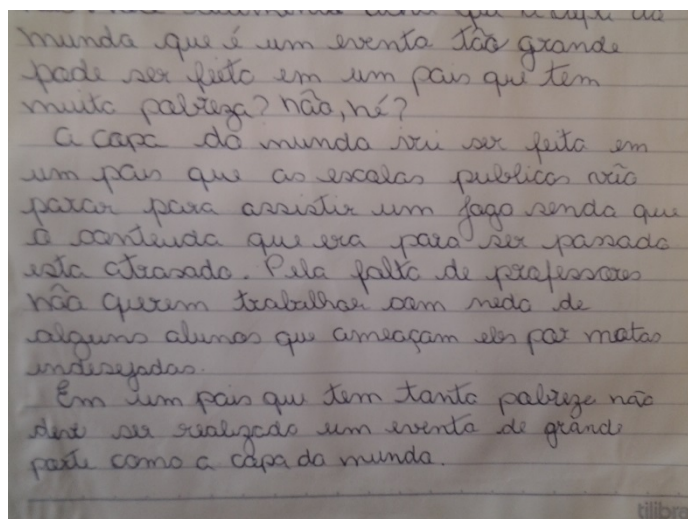 que a copa do
mundo que é um evento tão grande
pode ser feito em um pais que tem
muita pobreza? não, né?
A copa do mundo vai ser feita em
um pais que as escolas publicas vão
parar para assistir um jogo sendo que
o conteudo que era para ser passado
esta atrasado. Pela falta de professores
não querem trabalhar com medo de
alguns alunos que ameaçam eles por notas
indesejadas.
Em um pais que tem tanta pobreza não
deve ser realizado um evento de grande
porte como a copa do mundo.
tilibra